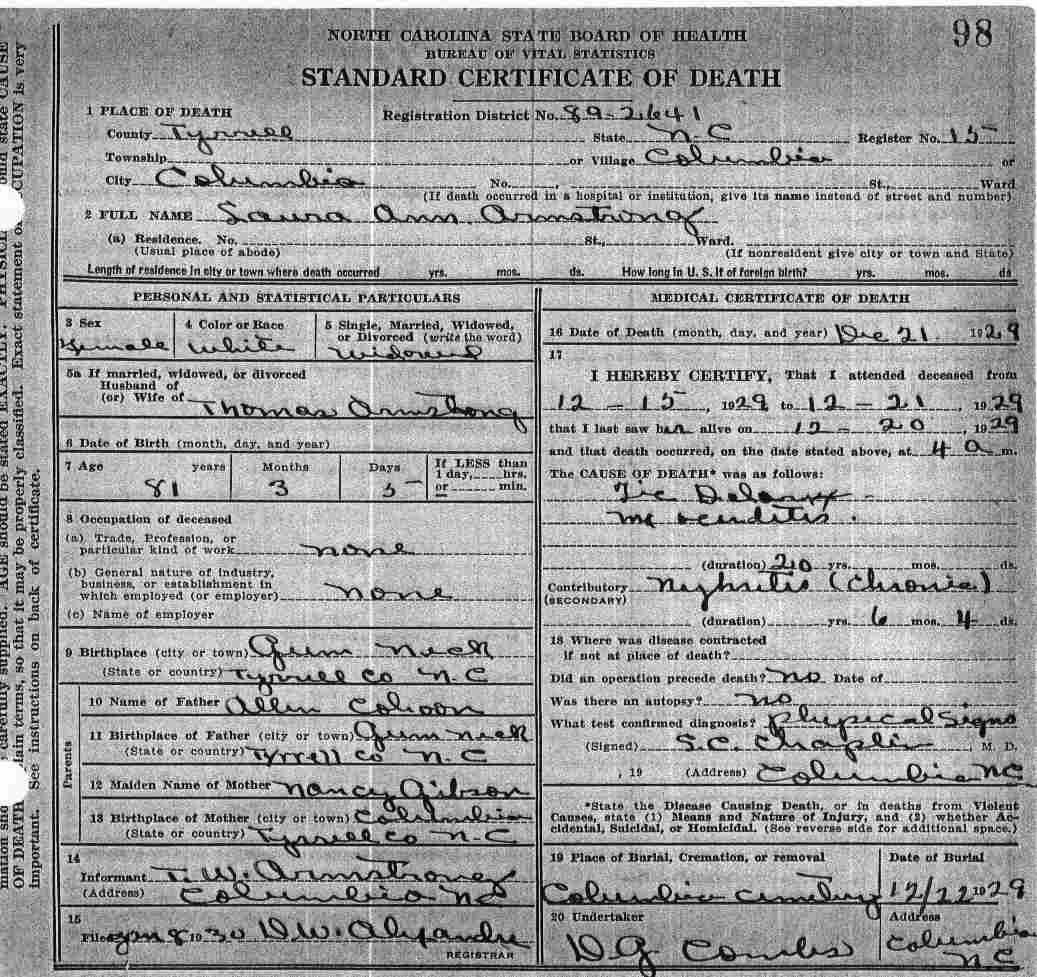 98
NORTH CAROLINA STATE BOARD OF HEALTH
BUREAU OF VITAL STATISTICS
STANDARD CERTIFICATE OF DEATH
1 PLACE OF DEATH Registration District No. 89-2641
County Tyrrell State N.C Register No. 15
Township or Village Columbia or
City Columbia No. St., Ward
(If death occurred in a hospital or institution, give its name instead of street and number)
2 FULL NAME Laura Ann Armstrong
(a) Residence. No. St., Ward.
(Usual place of abode) (If nonresident give city or town and State)
Length of residence in city or town where death occurred yrs. mos. ds. How long in U. S. If of foreign birth? yrs. mos. ds
PERSONAL AND STATISTICAL PARTICULARS
3 Sex 4 Color or Race 5 Single, Married, Widowed,
or Divorced (write the word)
Female White Widowed
5a If married, widowed, or divorced
Husband of
(or) Wife of Thomas Armstrong
6 Date of Birth (month, day, and year)
7 Age years Months Days If LESS than
1 day, hrs.
or min.
81 3 5
8 Occupation of deceased
(a) Trade, Profession, or
particular kind of work none
(b) General nature of industry,
business, or establishment in
which employed (or employer) none
(c) Name of employer
9 Birthplace (city or town) Gum Neck
(State or country) Tyrrell Co N.C
Parents
10 Name of Father Allen Cohoon
11 Birthplace of Father (city or town) Gum neck
(State or country) Tyrrell Co N.C
12 Maiden Name of Mother Nancy Gibson
13 Birthplace of Mother (city or town) Columbia
(State or country) Tyrrell Co N-C
14
Informant T. W. Armstrong
(Address) Columbia NC
15
Filed Jan 8 1930 D.W. Alexander
REGISTRAR
MEDICAL CERTIFICATE OF DEATH
16 Date of Death (month, day, and year) Dec 21 1929
17
I HEREBY CERTIFY, That I attended deceased from
12 - 15, 1929 to 12 - 21, 1929
that I last saw her alive on 12 - 20, 1929
and that death occurred, on the date stated above, at 4 a m.
The CAUSE OF DEATH* was as follows:
Tic
(duration) 20 yrs. mos. ds.
Contributory Nephritis (Chronic)
(SECONDARY)
(duration) yrs. 6 mos. 4 ds.
18 Where was disease contracted
if not at place of death?
Did an operation precede death? no Date of
Was there an autopsy? no
What test confirmed diagnosis? Physical Signs
(Signed) S.C. Chaplin, M. D.
, 19 (Address) Columbia NC
*State the Disease Causing Death, or in deaths from Violent
Causes, state (1) Means and Nature of Injury, and (2) whether Ac-
cidental, Suicidal, or Homicidal. (See reverse side for additional space.)
19 Place of Burial, Cremation, or removal Date of Burial
Columbia Cemetery 12/22 1929
20 Undertaker Address
D G Combs Columbia
N C
OF DEATH
lain terms, so that it may be properly classified. Exact statement of
CUPATION is very
important. See instructions on back of certificate.
carefully supplied. AGE should be stated EXACTLY.